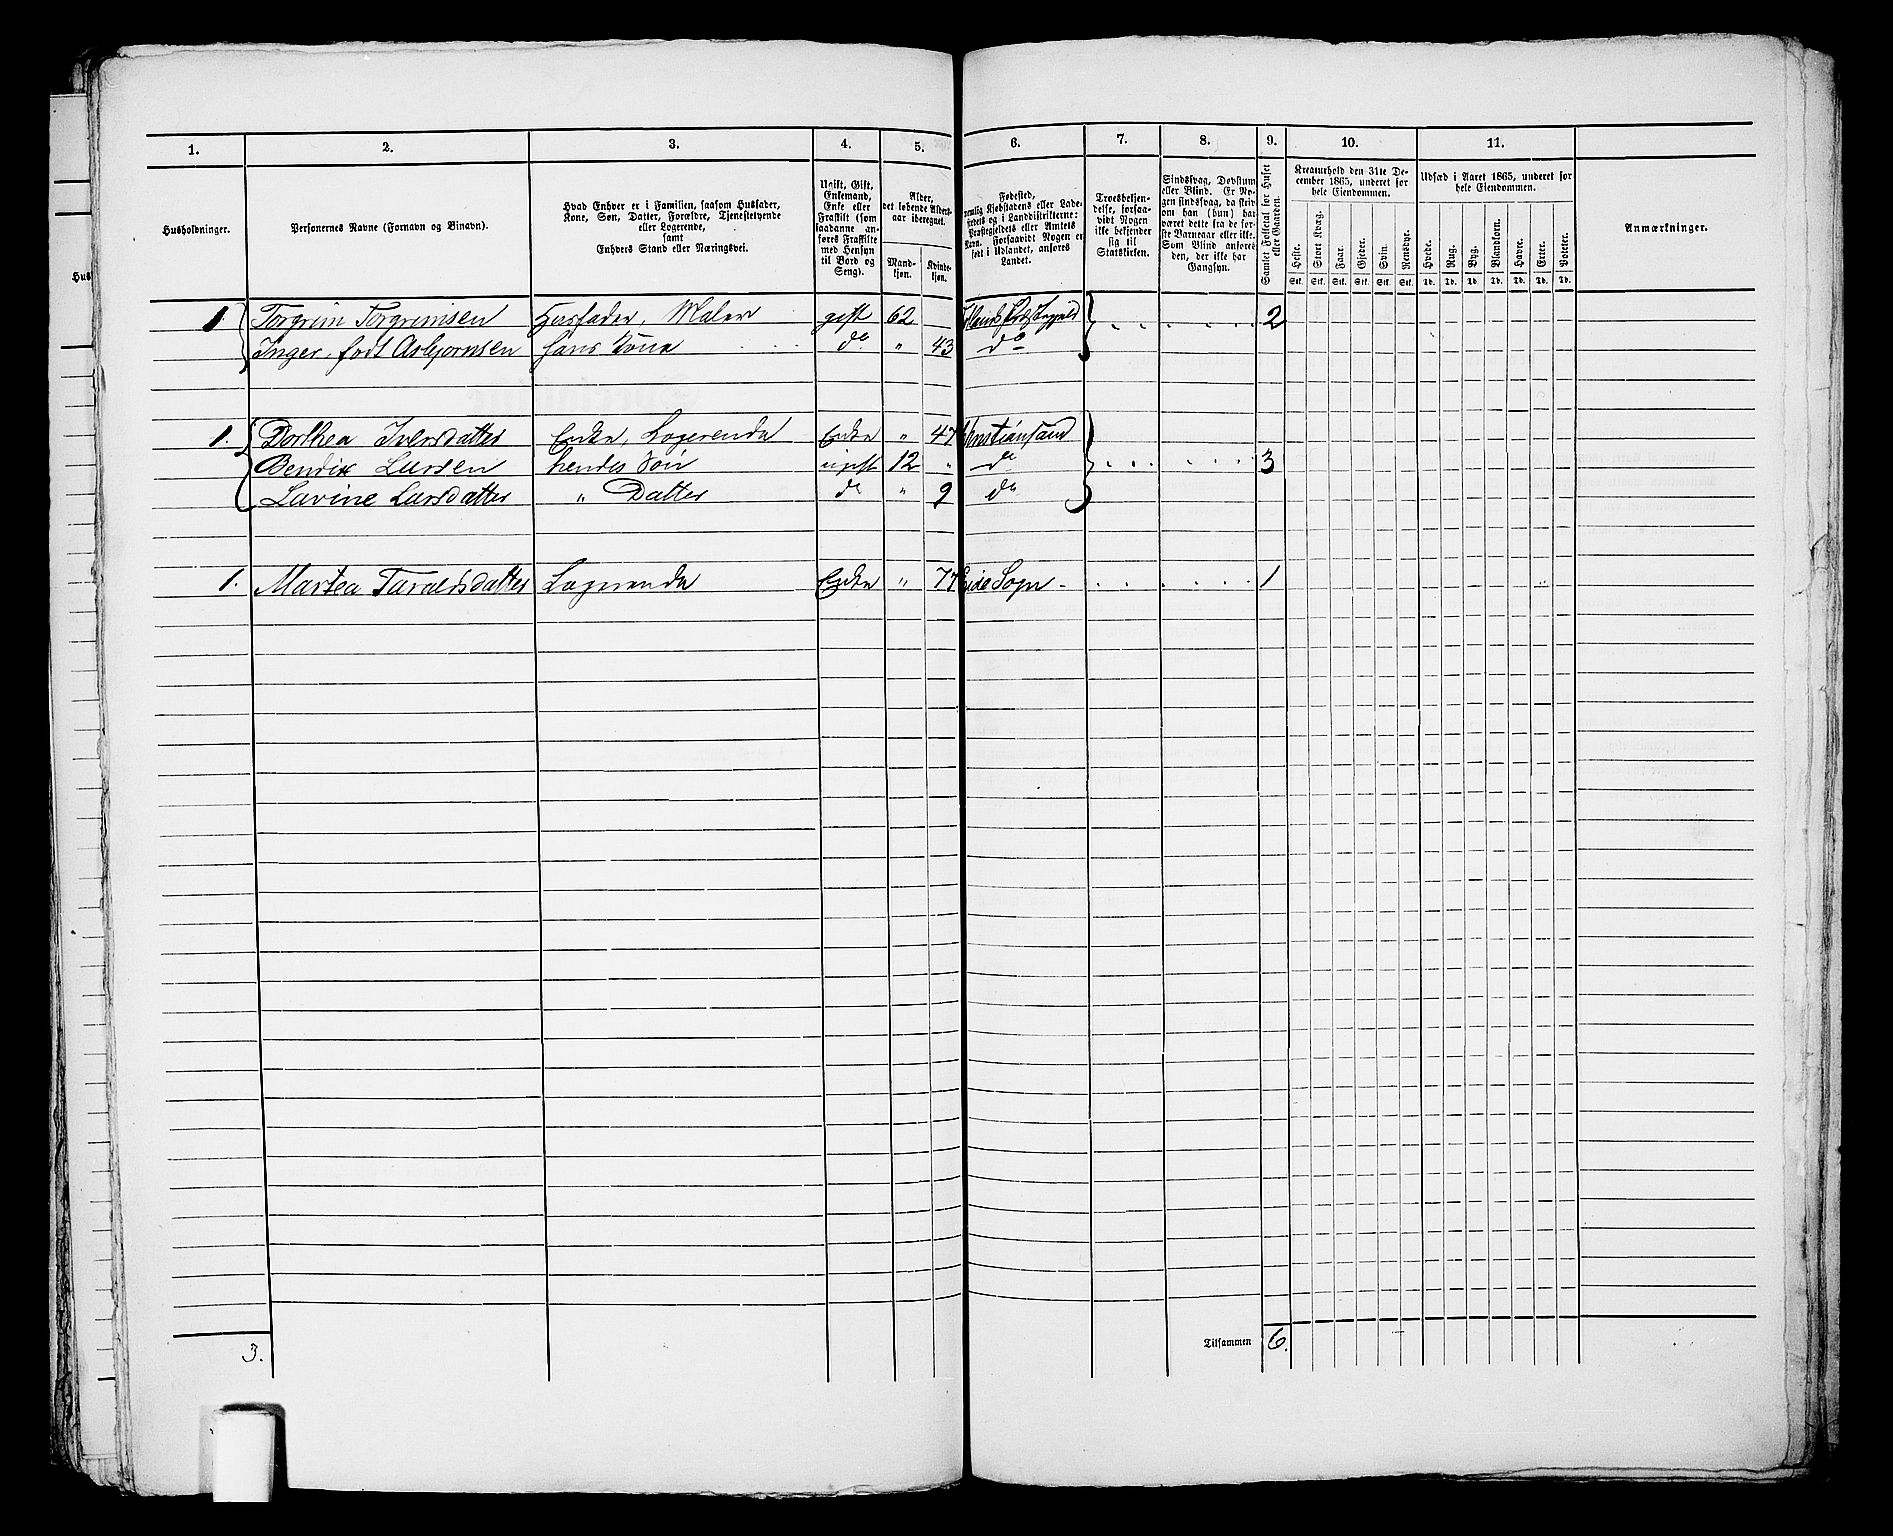 1. 2. 3. 4. 5. 6. 7. 8. 9. 10. 11.
Husholdninger.
Personernes Navne (Fornavn og Binavn).
Hvad Enhver er i Familien, saasom Husfader,
Kone, Søn, Datter, Forældre, Tjenestetyende
eller Logerende,
samt
Enhvers Stand eller Næringsvei.
Ugift, Gift,
Enkemand,
Enke eller
Fraskilt (som
saadanne an-
føres Fraskilte
med Hensyn
til Bord og
Seng).
Alder,
det løbende Alders-
aar iberegnet.
Mand-
kjøn.
Kvinde-
kjøn.
Fødested,
nemlig Kjøbstadens eller Lade-
stedets og i Landdistrikterne:
Præstegjeldets eller Amtets
Navn. Forsaavidt Nogen er
født i Udlandet, anføres
Landet.
Troesbekjen-
delse, forsaa-
vidt Nogen
ikke bekjender
sig til
Statskirken.
Sindssvag, Døvstum
eller Blind. Er No-
gen sindssvag, da skriv
om han (hun) har
været dette fra de før-
ste Barneaar eller ikke.
Som Blind anføres
den, der ikke har
Gangsyn.
Samlet Folketal for Huset
eller Gaarden.
Kreaturhold den 31te De-
cember 1865, underet for
hele Eiendommen.
Heste. Stort Kvæg. Faar. Gjeder. Svin. Rensdyr.
Stk. Stk. Stk. Stk. Stk. Stk.
Udsæd i Aaret 1865, underet for
hele Eiendommen.
Hvede. Rug. Byg. Blandkorn. Havre. Erter. Poteter.
Td. Td. Td. Td. Td. Td. Td.
Anmærkninger.
1. Torgrim Torgrimsen Husfader, Maler gift 62 2
Inger, født Asbjørnsen hans Kone do " 43 do
1. Dorthea Iversdatter Enke, Logerende Enke " 47 Christiansand
Bendix Larsen hendes Søn ugift 12 " do 3
Lavine Larsdatter " Datter do " 9 do
1. Martea Taraldsdatter Logerende Enke " 77 Eide Sogn - 1
3. Tilsammen 6.